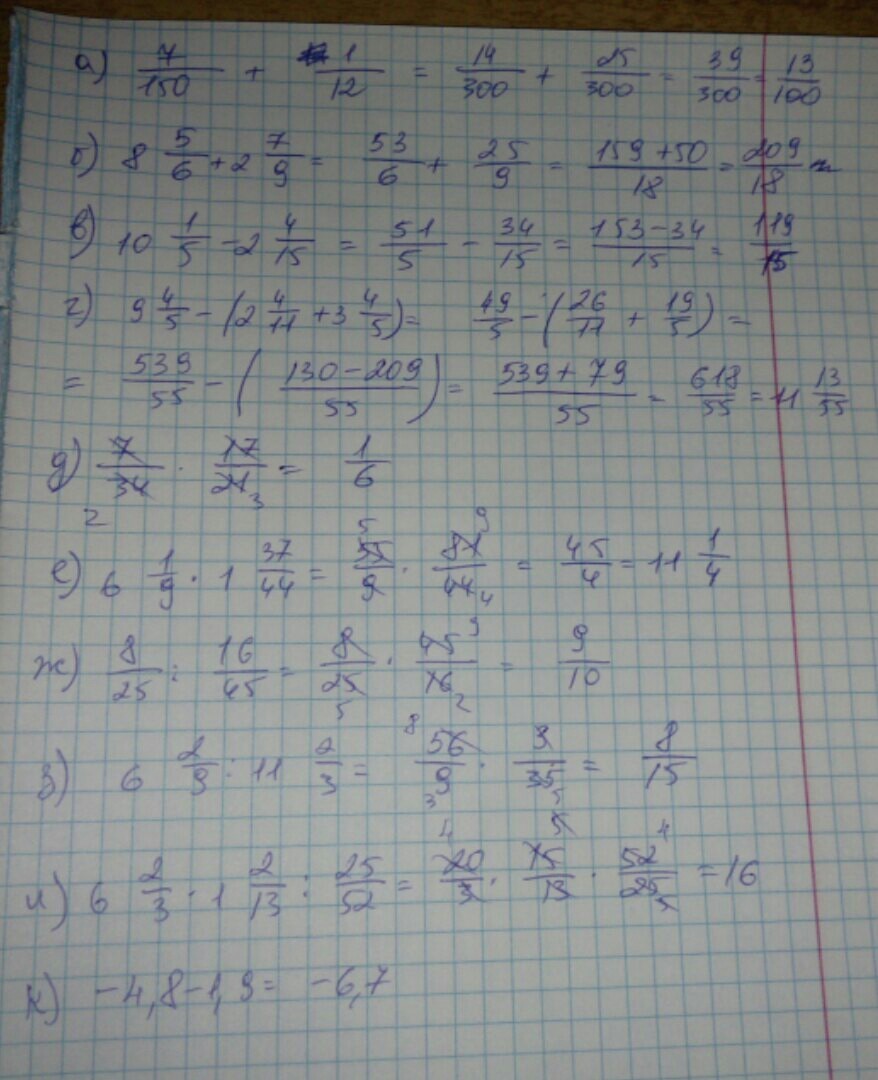 а) 7/150 + 1/12 = 14/300 + 25/300 = 39/300 = 13/100
б) 8 5/6 + 2 7/9 = 53/6 + 25/9 = (159 + 50)/18 = 209/18
в) 10 1/5 - 2 4/15 = 51/5 - 34/15 = (153 - 34)/15 = 119/15
г) 9 4/5 - (2 4/11 + 3 4/5) = 49/5 - (26/11 + 19/5) =
= 539/55 - ((130 - 209)/55) = (539 + 79)/55 = 618/55 = 11 13/55
д) 7/34 · 17/21 = 1/6
2 3
е) 6 1/9 · 1 37/44 = 55/9 · 81/44 = 45/4 = 11 1/4
ж) 8/25 : 16/45 = 8/25 · 45/16 = 9/10
з) 6 2/9 : 11 2/3 = 56/9 · 3/35 = 8/15
и) 6 2/3 · 1 2/13 : 25/52 = 20/3 · 15/13 · 52/25 = 16
к) -4,8 - 1,9 = -6,7